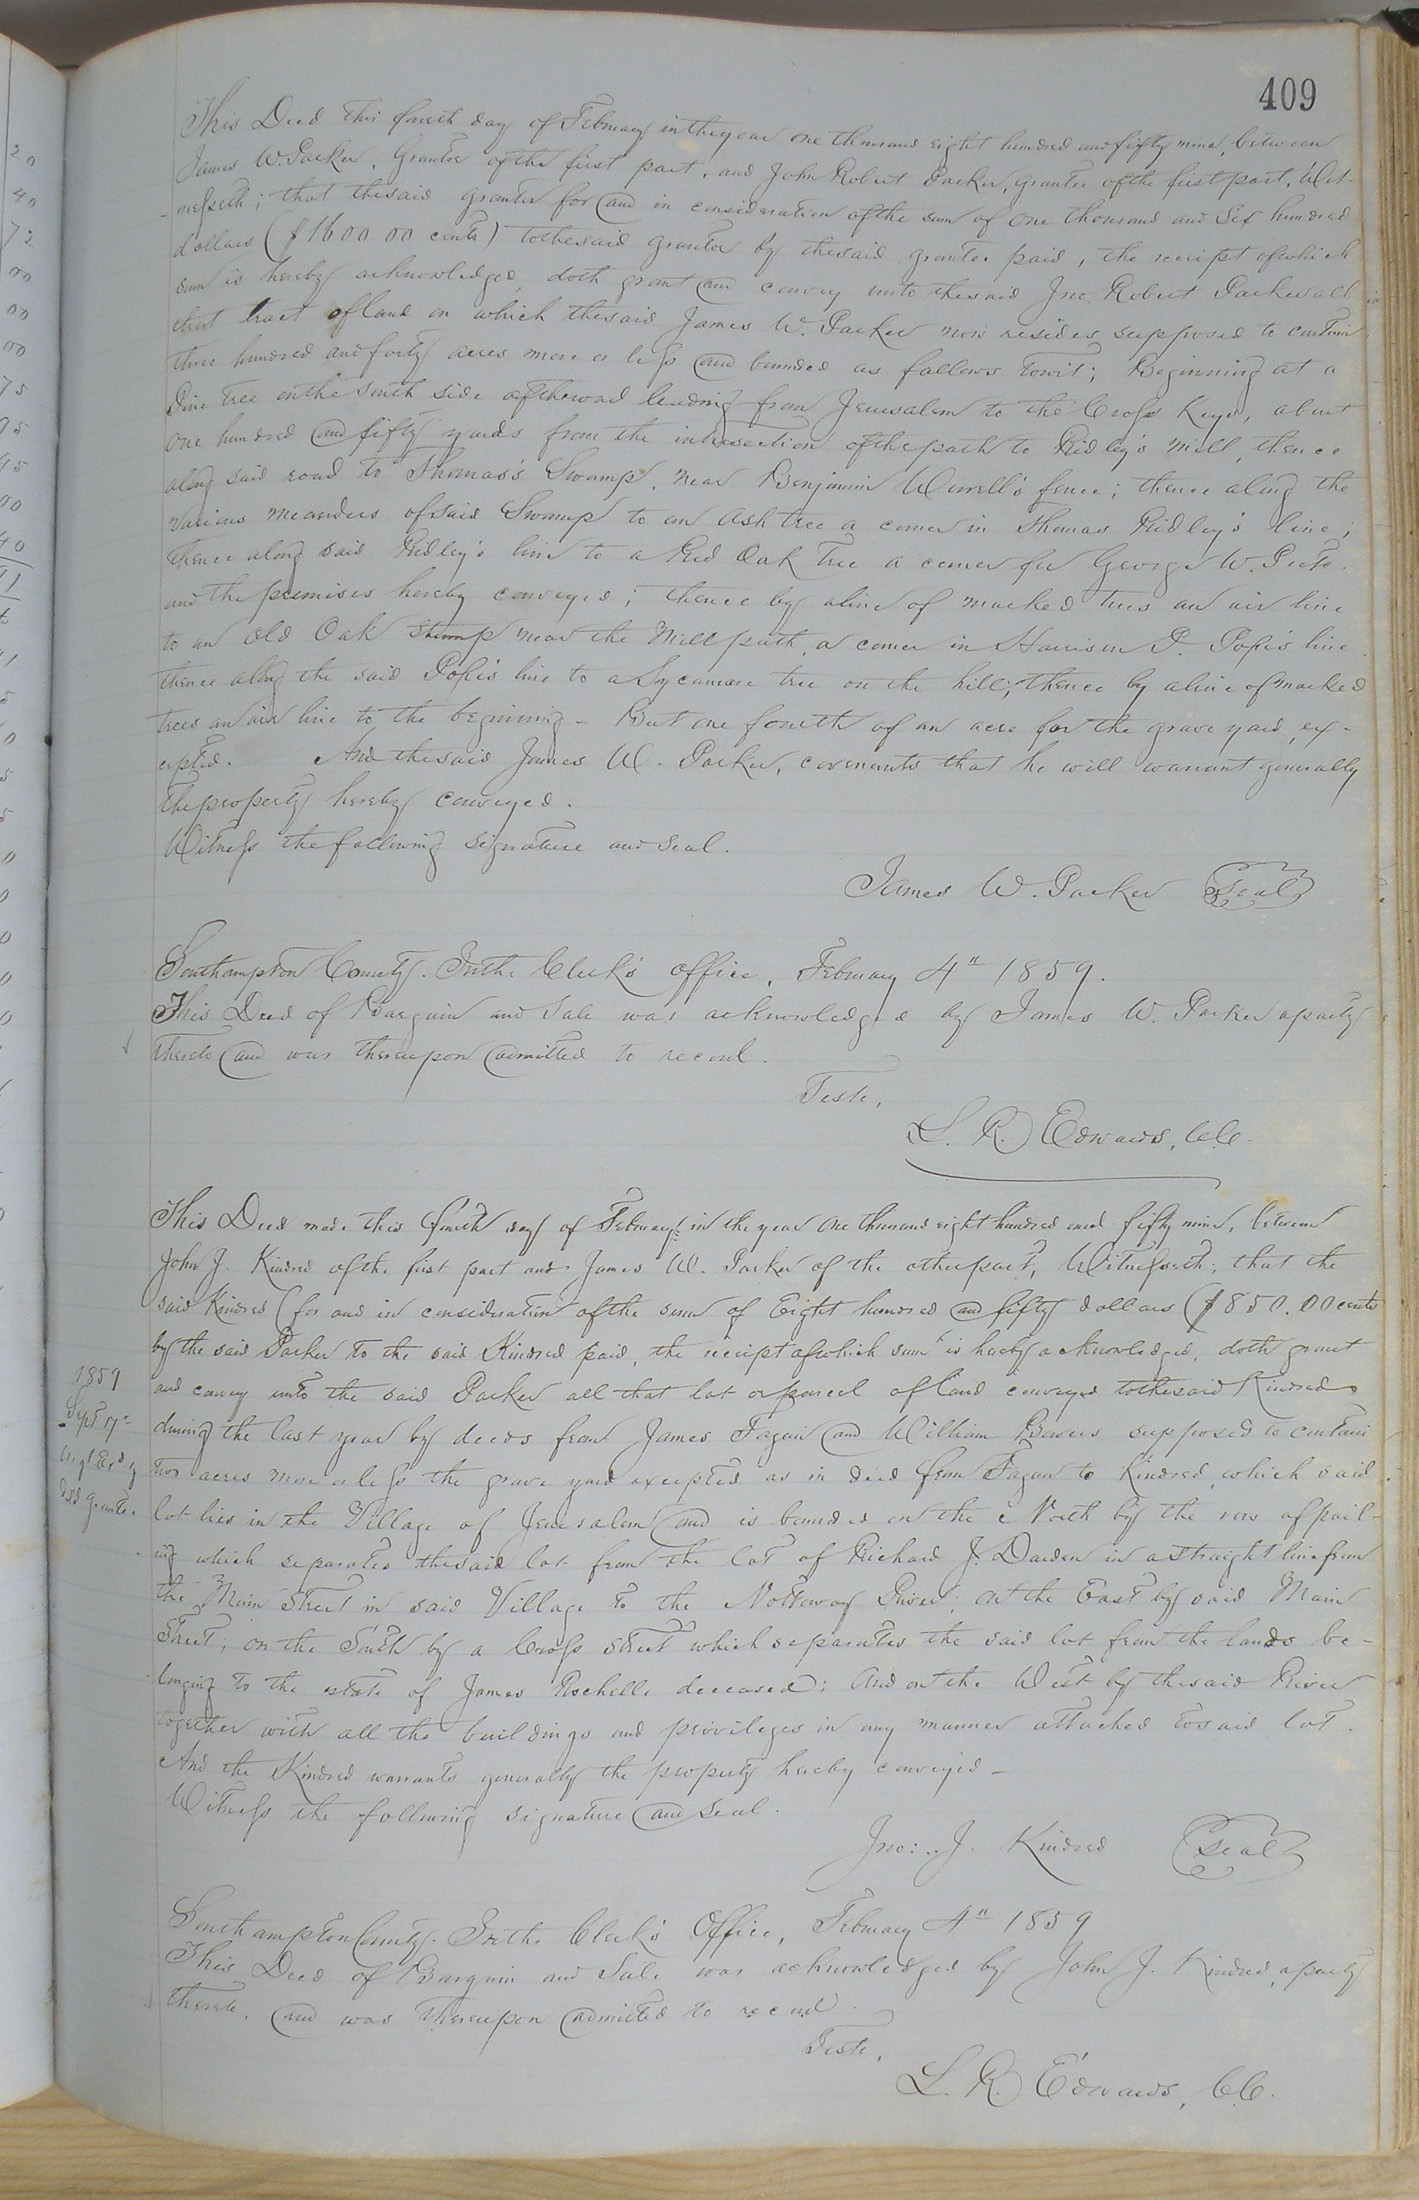 409
This Deed this fourth day of February in the year one thousand eight hundred and fifty nine, between
James W. Parker, Grantor of the first part, and John Robert Parker, grantee of the first part, Wit-
-nesseth; that the said grantor for and in consideration of the sum of one thousand and six hundred
dollars ($1600 00 cents) to the said grantor by the said grantee paid, the receipt of which
sum is hereby acknowledged, doth grant and convey unto the said Jno. Robert Parker all
that tract of land on which the said James W. Parker now resides, supposed to contain
three hundred and forty acres more or less and bounded as follows towit; Beginning at a
Pine tree on the South side of the road leading from Jerusalem to the Cross Keys, about
one hundred and fifty yards from the intersection of the path to Ridley's mill, thence
along said road to Thomas's Swamp, near Benjamin Worrell's fence; thence along the
various meanders of said Swamp to an ash tree a corner in Thomas Ridley's line;
thence along said Ridley's line to a Red Oak tree a corner for George W. Peete
and the premises hereby conveyed; thence by a line of marked trees an air line
to an old Oak Stump near the Mill path, a corner in Harrison P. Pope's line
thence along the said Pope's line to a Sycamore tree on the hill; thence by a line of marked
trees an air line to the beginning - But one fourth of an acre for the grave yard, ex-
cepted. And the said James W. Parker, covenants that he will warrant generally
the property hereby conveyed.
Witness the following signature and seal.
James W. Parker Seal
Southampton County. In the Clerk's office, February 4" 1859.
This Deed of Bargain and Sale was acknowledged by James W. Parker a party
thereto and was thereupon admitted to record.
Teste,
L. R. Edwards, C.C.
This Deed made this fourth day of February in the year one thousand eight hundred and fifty nine, between
John J. Kindred of the first part and James W. Parker of the other part, Witnesseth; that the
said Kindred for and in consideration of the sum of Eight hundred and fifty dollars ($850.00 cents
by the said Parker to the said Kindred paid, the receipt of which sum is hereby acknowledged, doth grant
and convey unto the said Parker all that lot or parcel of land conveyed to the said Kindred
during the last year by deeds from James Fagan and William Bowers supposed to contain
two acres more or less the grave yard excepted as in deed from Fagan to Kindred, which said
lot lies in the Village of Jerusalem and is bounded on the North by the row of pail-
ing which separates the said lot from the lot of Richard J. Darden in a straight line from
the Main Street in said Village to the Nottoway River; on the East by said Main
Street; on the South by a Cross street which separates the said lot from the lands be-
longing to the estate of James Rochelle deceased; And on the West by the said River
together with all the buildings and privileges in any manner attached to said lot.
And the Kindred warrants generally the property hereby conveyed -
Witness the following signature and seal.
Jno: J. Kindred Seal
1859
Sept 17"
dd grantee.
Southampton County. In the Clerk's Office, February 4" 1859
This Deed of Bargain and Sale was acknowledged by John J. Kindred, a party
thereto, and was thereupon admitted to record.
Teste,
L. R. Edwards, C.C.